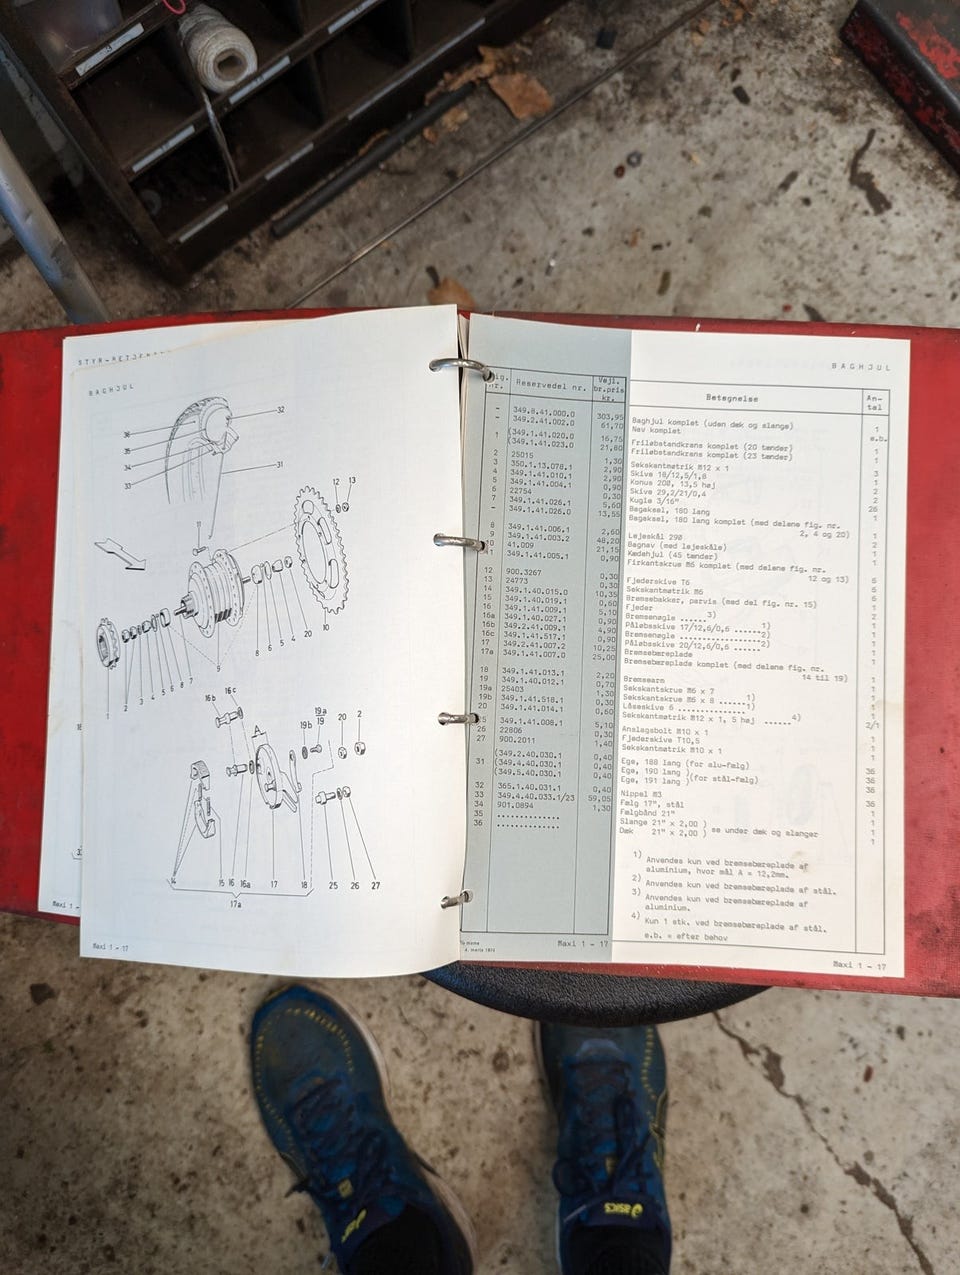 BAGHJUL
32
36
35
34
33
31
12 13
11
10
20
4
5
6
8
9
7
8
6
5
4
3
2
1
16b 16c
19a
19b 19 20 2
14 15 16 16a 17 18 25 26 27
17a
Maxi 1 - 17
BAGHJUL
nr. Reservedel nr. Vejl. br.pris kr. Betegnelse An-tal
- 349.8.41.000.0 303,95 Baghjul komplet (uden dæk og slange) 1
- 349.2.41.002.0 61,70 Nav komplet e.b.
1 (349.1.41.020.0 16,75 Friløbstandkrans komplet (20 tænder) 1
(349.1.41.023.0 21,80 Friløbstandkrans komplet (23 tænder) 1
2 25015 1,30 Sekskantmøtrik M12 x 1 3
3 350.1.13.078.1 2,90 Skive 18/12,5/1,8 1
4 349.1.41.010.1 2,90 Konus 208, 13,5 høj 2
5 349.1.41.004.1 0,90 Skive 29,2/21/0,4 2
6 22754 Kugle 3/16" 26
7 349.1.41.026.1 5,60 Bagaksel, 180 lang 1
- 349.1.41.026.0 13,55 Bagaksel, 180 lang komplet (med delene fig. nr.
2, 4 og 20) 1
8 349.1.41.006.1 2,60 Lejeskål 290 2
9 349.1.41.003.2 48,20 Bagnav (med lejeskåle) 1
10 41.009 21,15 Kædehjul (45 tænder) 1
11 349.1.41.005.1 0,90 Firkantskrue M6 komplet (med delene fig. nr.
12 og 13) 6
12 900.3267 0,30 Fjederskive T6 6
13 24773 0,30 Sekskantmøtrik M6 6
14 349.1.40.015.0 10,35 Bremsebakker, parvis (med del fig. nr. 15) 1
15 349.1.40.019.1 0,60 Fjeder 2
16 349.1.41.009.1 5,10 Bremsenøgle ......3) 1
16a 349.1.40.027.1 0,90 Påløbsskive 17/12,6/0,6 ......1) 1
16b 349.2.41.009.1 4,90 Bremsenøgle ...............2) 1
16c 349.1.41.517.1 0,90 Påløbsskive 20/12,6/0,6 ......2) 1
17 349.2.41.007.2 10,25 Bremsebæreplade 1
17a 349.1.41.007.0 25,00 Bremsebæreplade komplet (med delene fig. nr.
14 til 19) 1
18 349.1.41.013.1 2,20 Bremsearm 1
19 349.1.40.012.1 0,70 Sekskantskrue M6 x 7 1
19a 25403 1,30 Sekskantskrue M6 x 8 ......1) 1
19b 349.1.41.518.1 0,30 Låseskive 6 ...............1) 1
20 349.1.41.014.1 0,60 Sekskantmøtrik M12 x 1, 5 høj ......4) 2/1
25 349.1.41.008.1 5,10 Anslagsbolt M10 x 1 1
26 22806 0,30 Fjederskive T10,5 1
27 900.2011 1,40 Sekskantmøtrik M10 x 1 1
(349.2.40.030.1 0,40 Ege, 188 lang (for alu-fælg) 36
31 (349.4.40.030.1 0,40 Ege, 190 lang )(for stål-fælg) 36
(349.5.40.030.1 0,40 Ege, 191 lang ) 36
32 365.1.40.031.1 0,40 Nippel M3 36
33 349.4.40.033.1/23 59,05 Fælg 17", stål 1
34 901.0894 1,30 Fælgbånd 21" 1
35 .............. Slange 21" x 2,00 ) se under dæk og slanger 1
36 .............. Dæk 21" x 2,00 ) 1
1) Anvendes kun ved bremsebæreplade af
aluminium, hvor mål A = 12,2mm.
2) Anvendes kun ved bremsebæreplade af stål.
3) Anvendes kun ved bremsebæreplade af
aluminium.
4) Kun 1 stk. ved bremsebæreplade af stål.
e.b. = efter behov
Maxi 1 - 17
Maxi 1 - 17
asics
asics